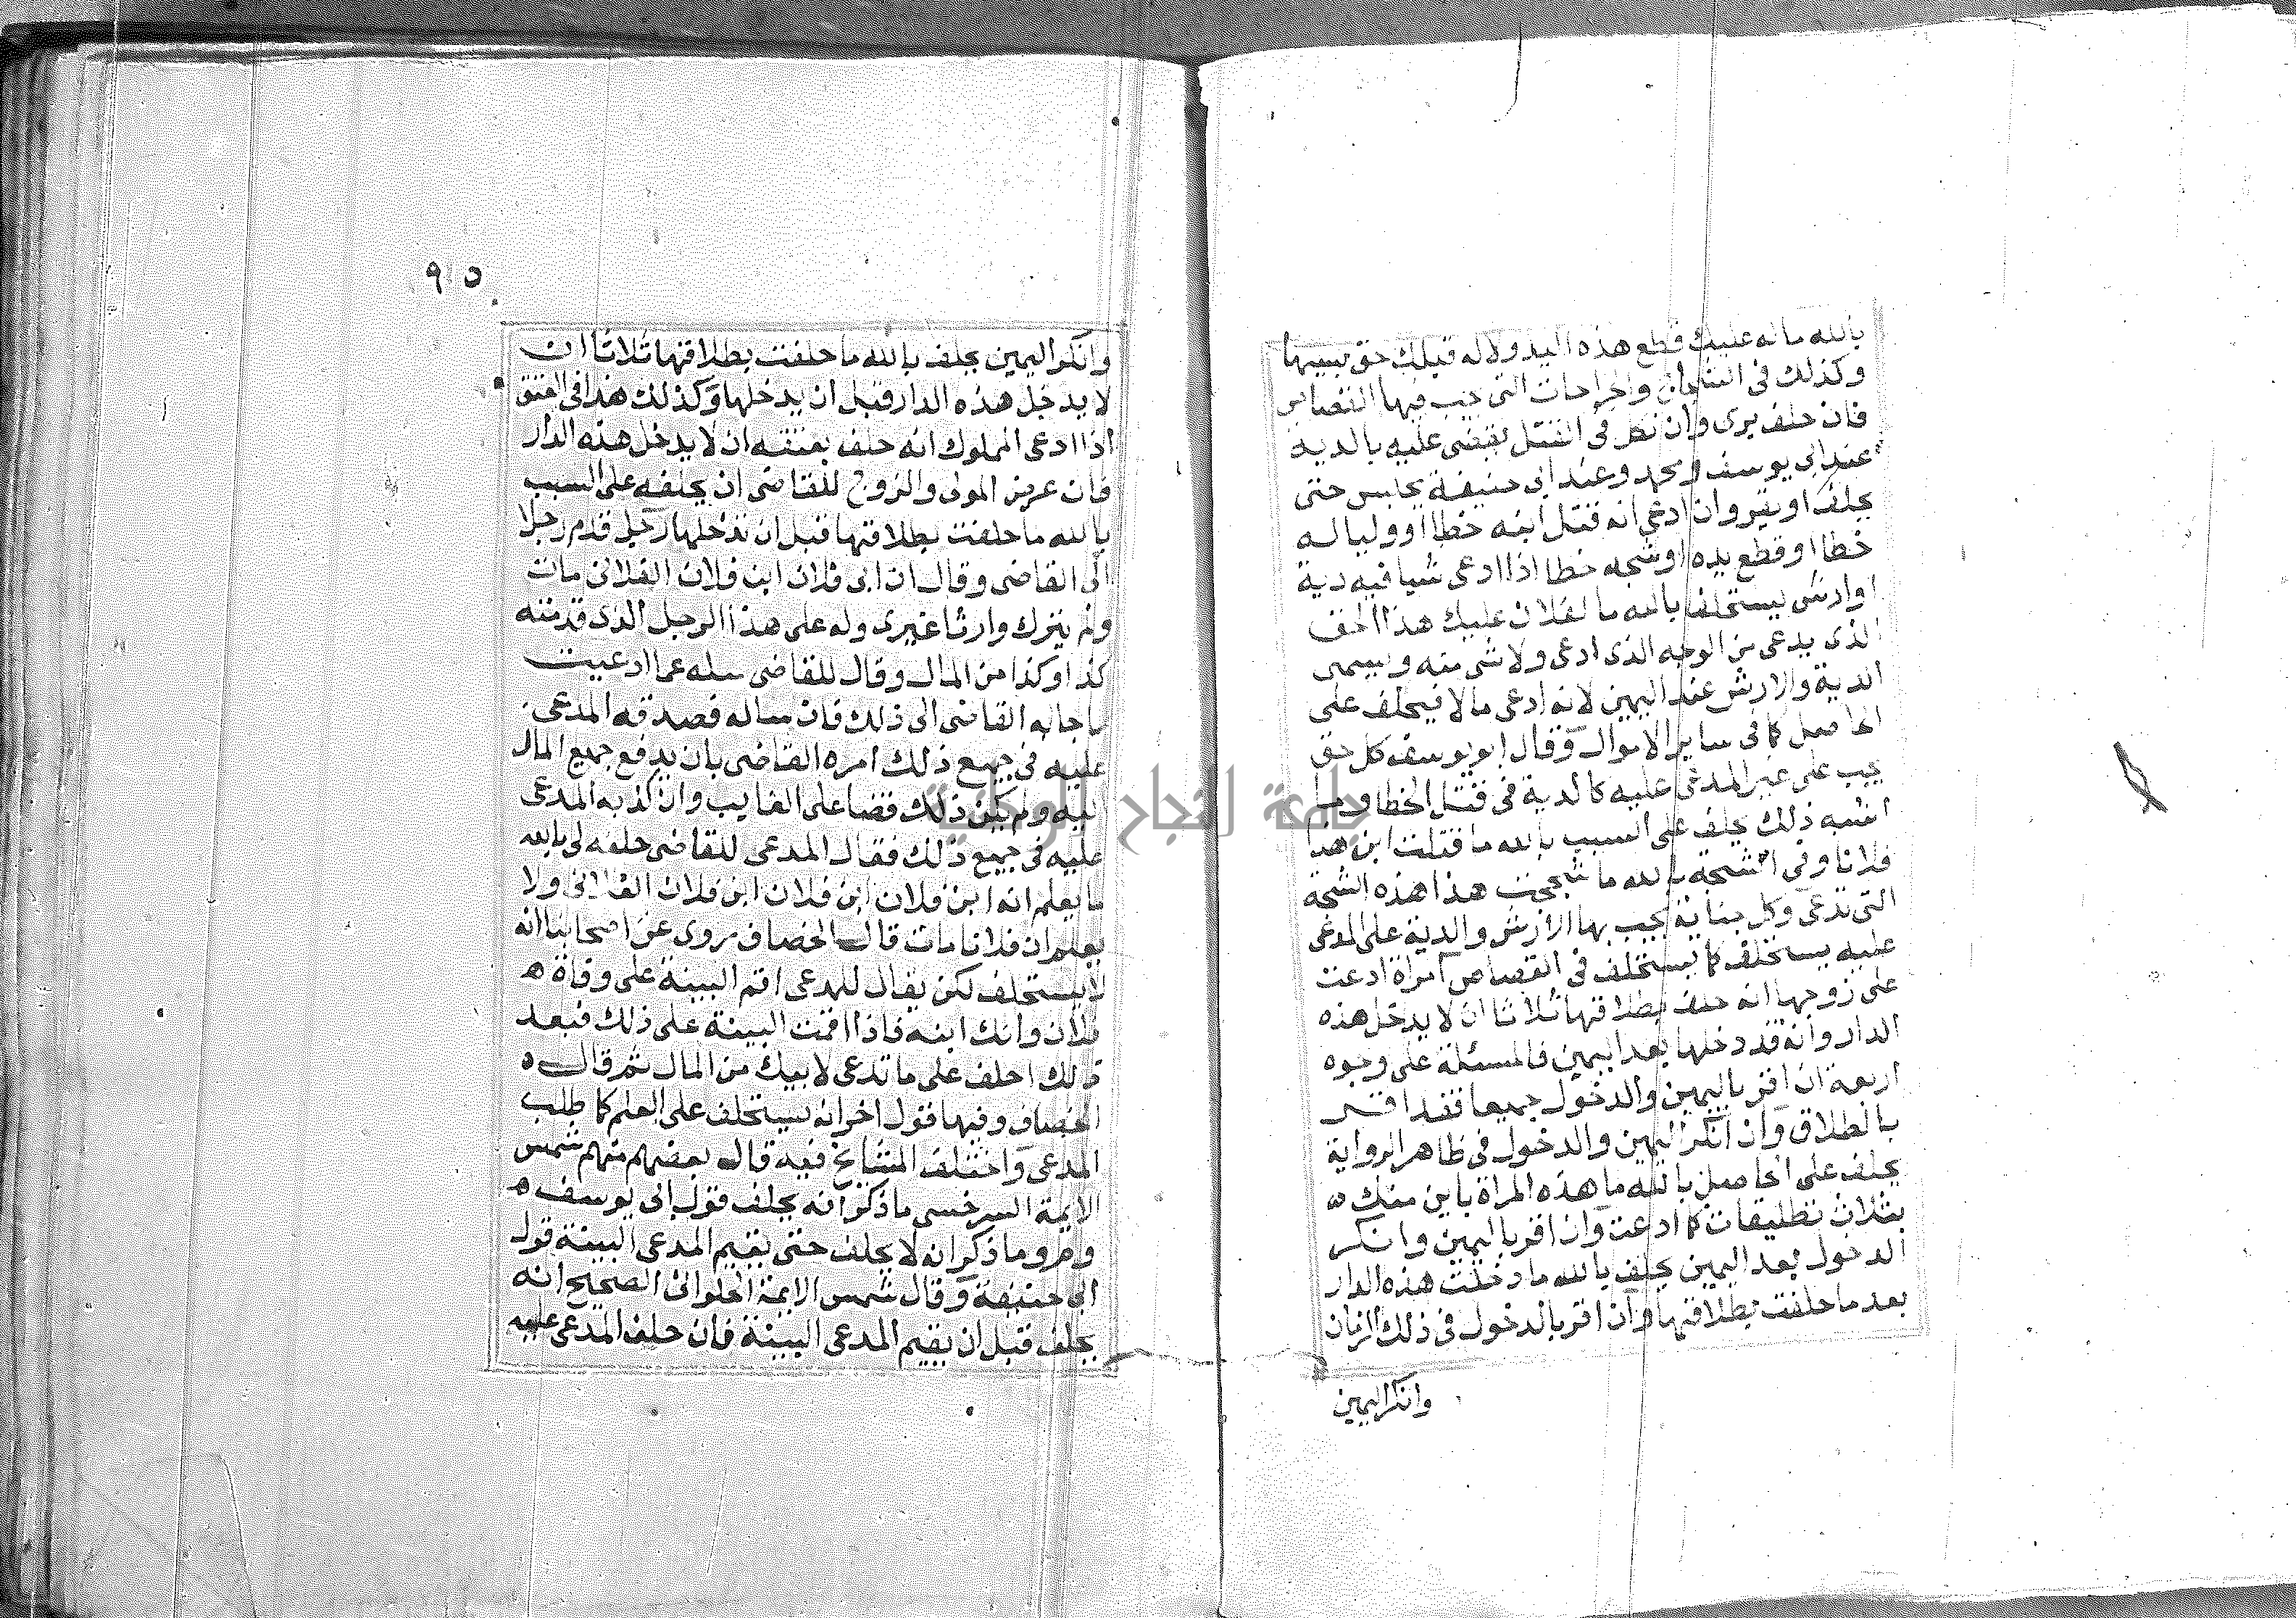 بالله ماله عليك قطع هذه اليد ولا له قبلك حق بسببها
وكذلك فى الشجاج والجراحات التى يجب فيها القصاص
فان حلف برى وان نكل فى القتل يقضى عليه بالدية
عند ابى يوسف ومحمد وعند ابى حنيفة يحبس حتى
يحلف او يقر وان ادعى انه قتل ابنه خطا او وليا له
خطا او قطع يده او شجه خطا اذا ادعى شيا فيه دية
او ارش يستحلف بالله ما لفلان عليك هذا الحق
الذى يدعى من الوجه الذى ادعى ولا شى منه ويسمى
الدية والارش عند اليمين لانه ادعى مالا فيحلف على
الحاصل كما فى ساير الاموال وقال ابو يوسف كل حق
يجب على غير المدعى عليه كالدية فى قتل الخطا وما
اشبه ذلك يحلف على السبب بالله ما قتلت ابن هذا
فلانا وفى الشجة بالله ما شججت هذا هذه الشجة
التى تدعى وكل جناية يجب بها الارش والدية على المدعى
عليه يستحلف كما يستحلف فى القصاص امراة ادعت
على زوجها انه حلف بطلاقها ثلاثا ان لا يدخل هذه
الدار وانه قد دخلها بعد اليمين فالمسئلة على وجوه
اربعة ان اقر باليمين والدخول جميعا فقد اقر
بالطلاق وان انكر اليمين والدخول فى ظاهر الرواية
يحلف على الحاصل بالله ما هذه المراة باين منك ه
بثلاث تطليقات كما ادعت وان اقر باليمين وانكر
الدخول بعد اليمين يحلف بالله ما دخلت هذه الدار
بعد ما حلفت بطلاقها وان اقر بالدخول فى ذلك الزمان
وانكر اليمين
٩٥
وانكر اليمين يحلف بالله ما حلفت بطلاقها ثلاثا ان
لا يدخل هذه الدار قبل ان يدخلها وكذلك هذا فى العتق
اذا ادعى المملوك انه حلف بعتقه ان لا يدخل هذه الدار
فان عرض المولى والزوج للقاضى ان يحلفه على السبب
بالله ما حلفت بطلاقها قبل ان تدخلها رجل قدم رجلا
الى القاضى وقال ان ابى فلان ابن فلان الفلانى مات
ولم يترك وارثا غيرى وله على هذا الرجل الذى قدمته
كذا وكذا من المال وقال للقاضى سله عما ادعيت
اجابه القاضى الى ذلك فان ساله فصدقه المدعى
عليه فى جميع ذلك امره القاضى بان يدفع جميع المال
اليه ولم يكن ذلك قضا على الغايب وان كذبه المدعى
عليه فى جميع ذلك فقال المدعى للقاضى حلفه لى بالله
ما يعلم انه ابن فلان ابن فلان ابن فلان الفلانى ولا
يعلم ان فلانا مات قال الخصاف روى عن اصحابنا انه
لا يستحلف لكن يقال للمدعى اقم البينة على وفاة ه
فلان وانك ابنه فاذا اقمت البينة على ذلك فبعد
ذلك احلف على ما تدعى لابيك من المال ثم قال ه
الخصاف وفيها قول اخر انه يستحلف على العلم كما طلب
المدعى واختلف المشايخ فيه قال بعضهم منهم شمس
الايمة السرخسى ما ذكر انه يحلف قول ابى يوسف ه
ومحمد وما ذكر ان لا يحلف حتى يقيم المدعى البينة قول
ابى حنيفة وقال شمس الايمة الحلوانى الصحيح انه
يحلف قبل ان يقيم المدعى البينة فان حلف المدعى عليه
جامعة النجاح الوطنية